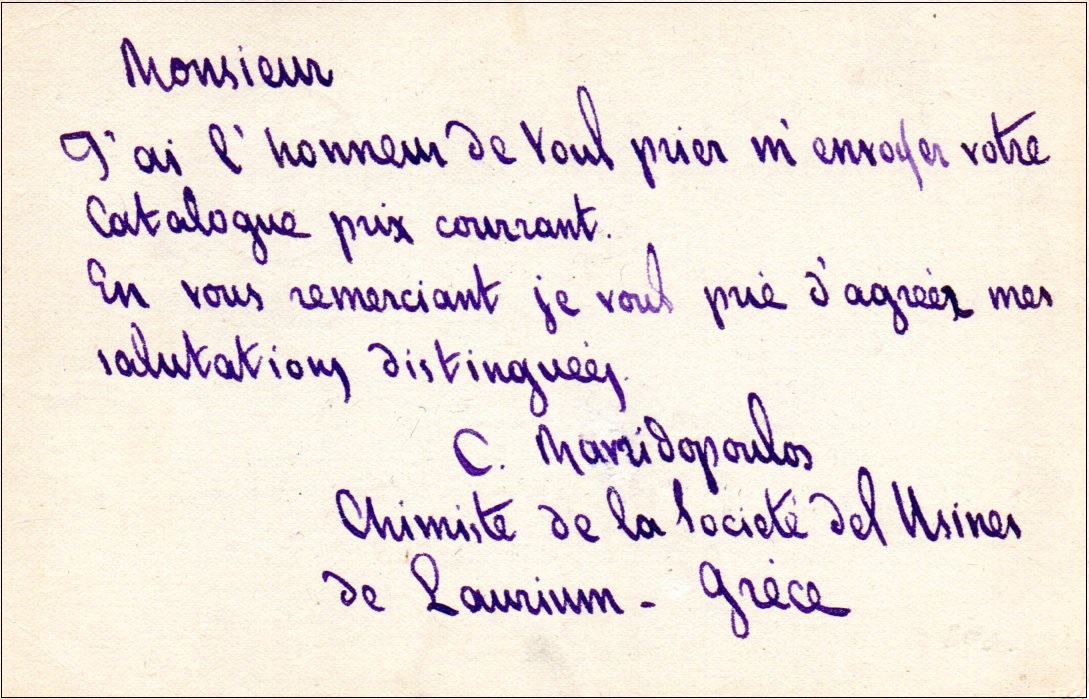 Monsieur
J'ai l'honneur de vous prier m'envoyer votre
Catalogue prix courrant.
En vous remerciant je vous prie d'agréer mes
salutations distinguées.
C. Mavridopoulos
Chimiste de la Societé des Usines
de Laurium - Grèce